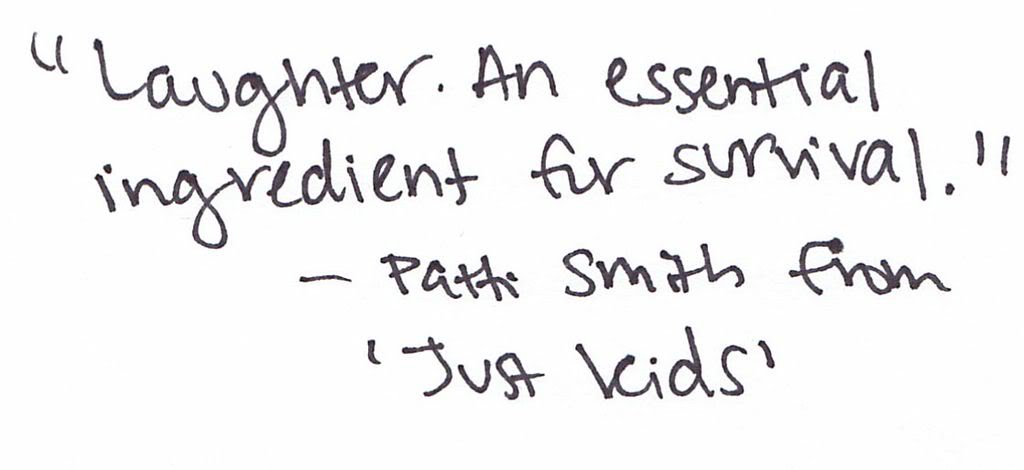 "Laughter. An essential
ingredient for survival."
- Patti Smith from
'Just kids'